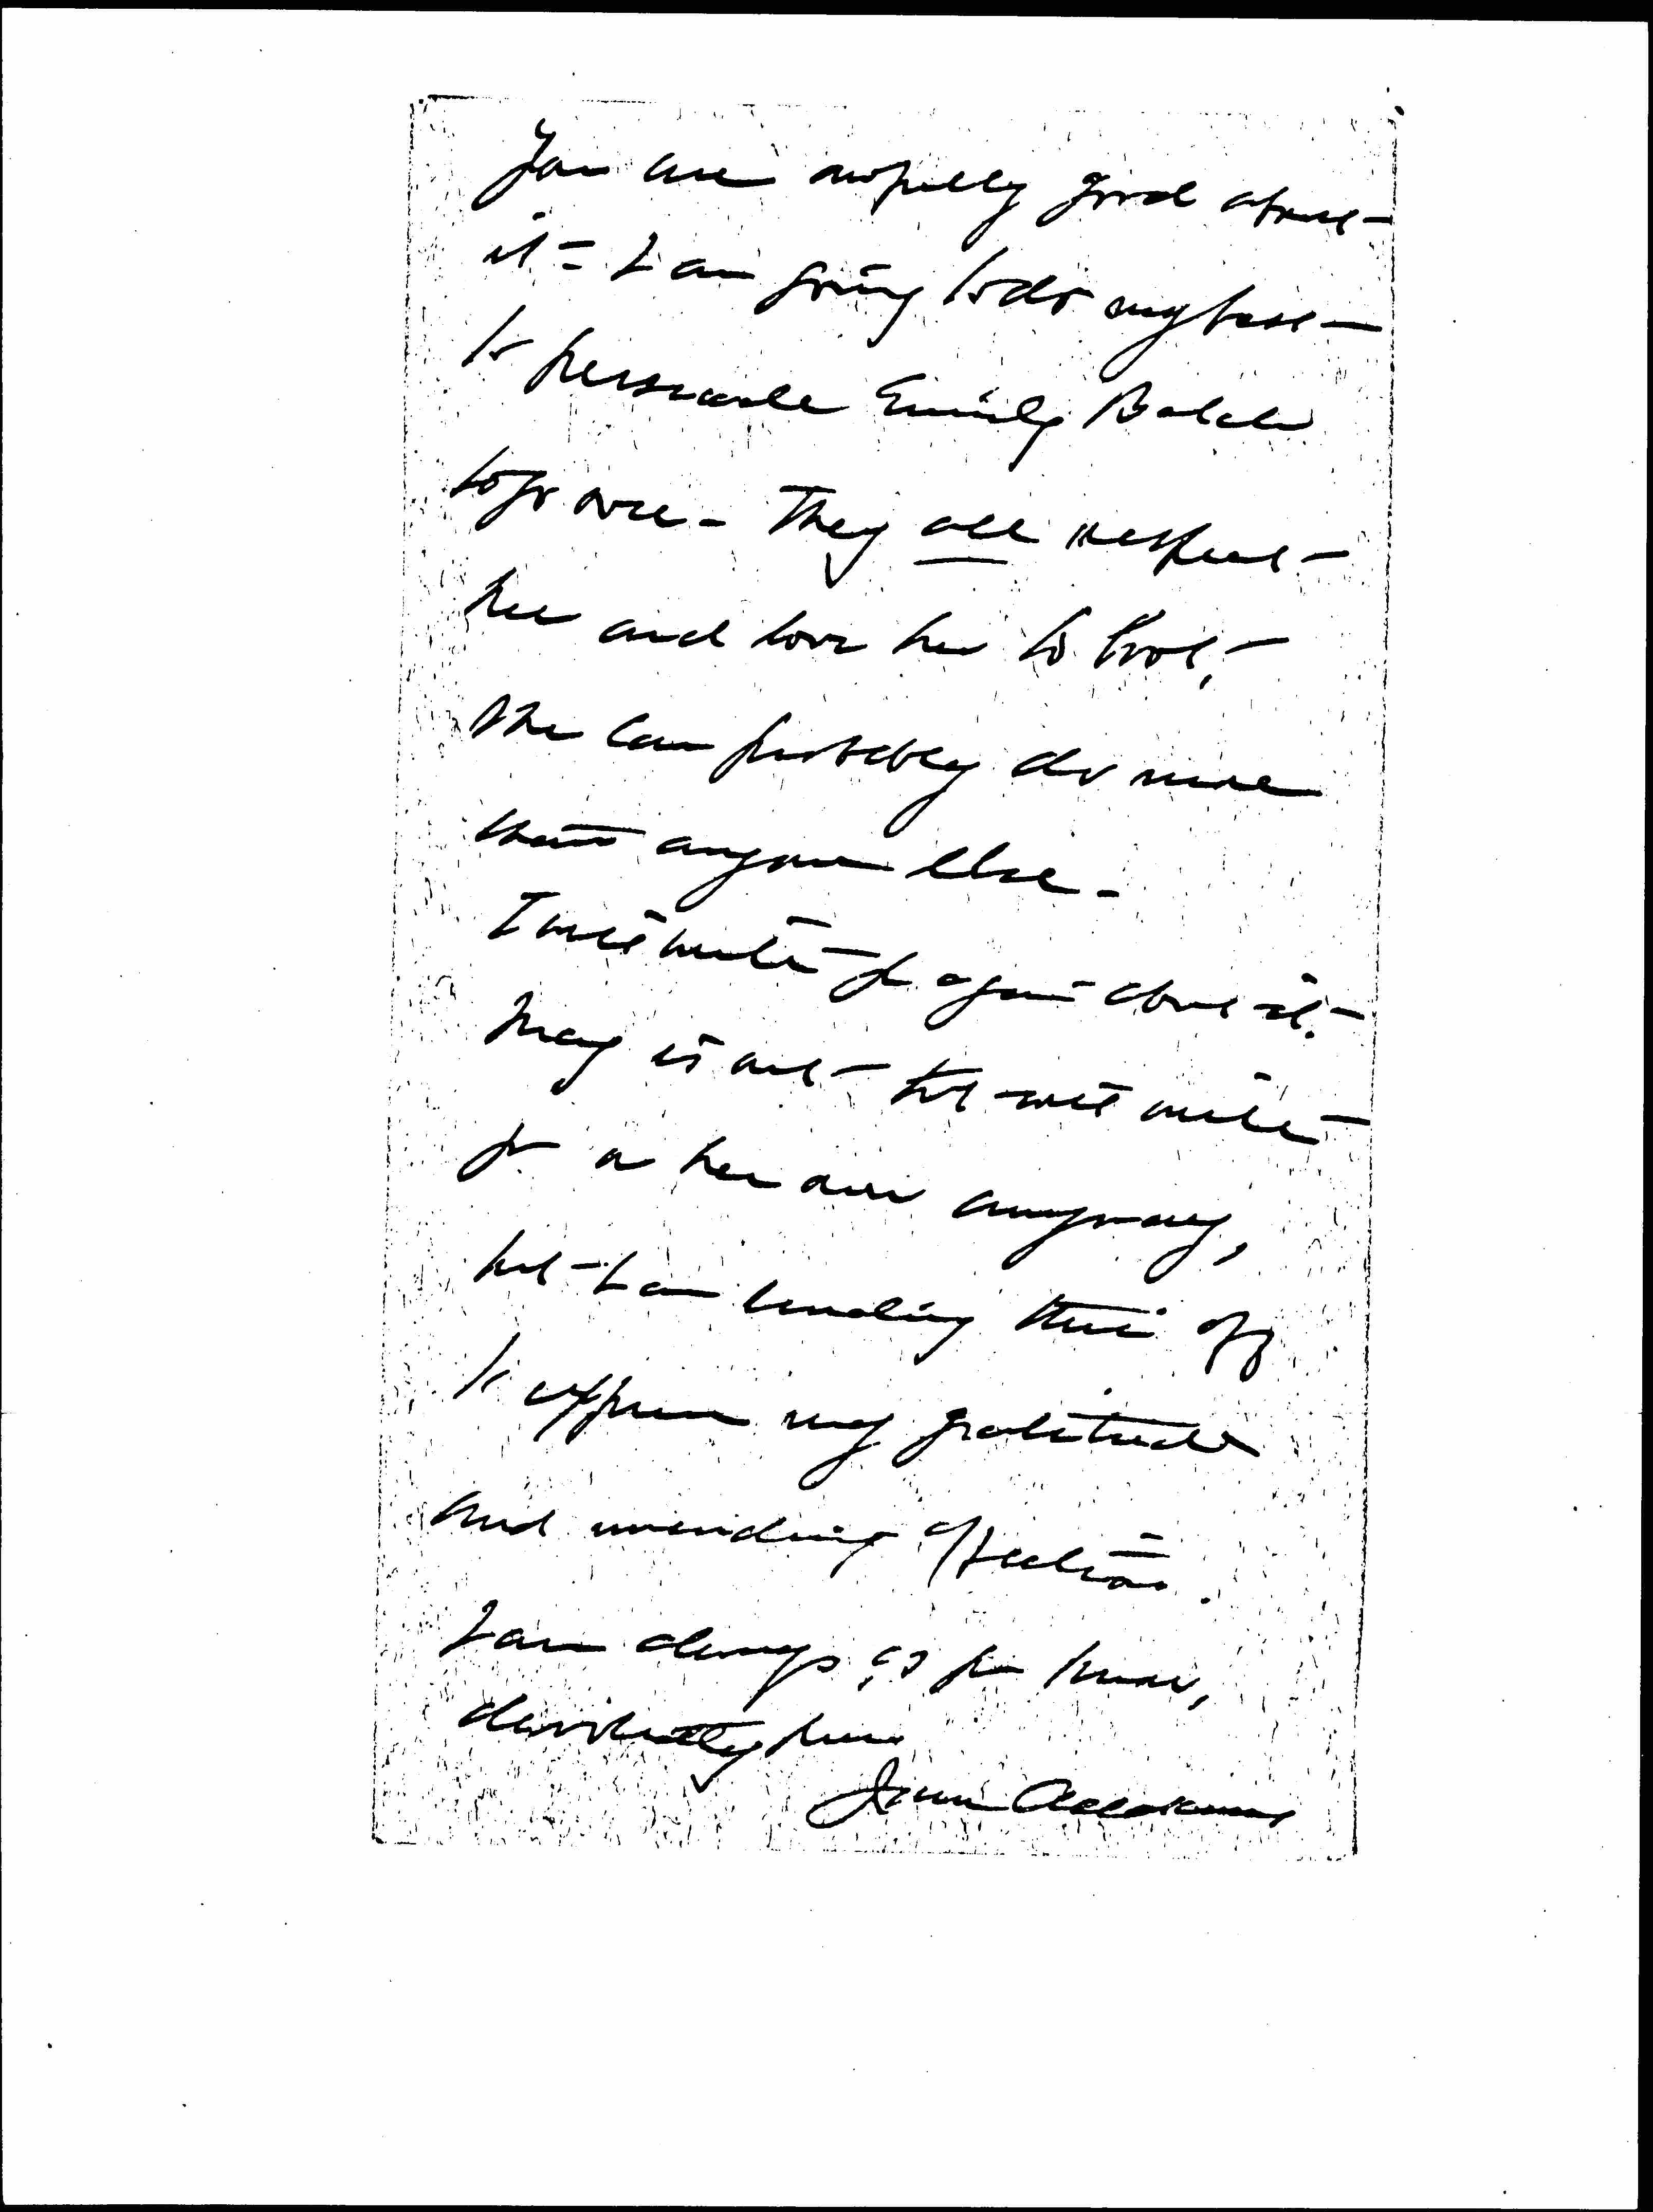 You are awfully good about
it - I am going to do my best
to persuade Emily Balch
to go over - They all respect
her and love her to boot,
She can probably do more
than anyone else -
I will write you again about it.
Mary is out - but will write
you on her own anyway,
but I am sending this off
to express my gratitude
and unending affection.
I am always as you know,
devotedly yours
Jane Addams